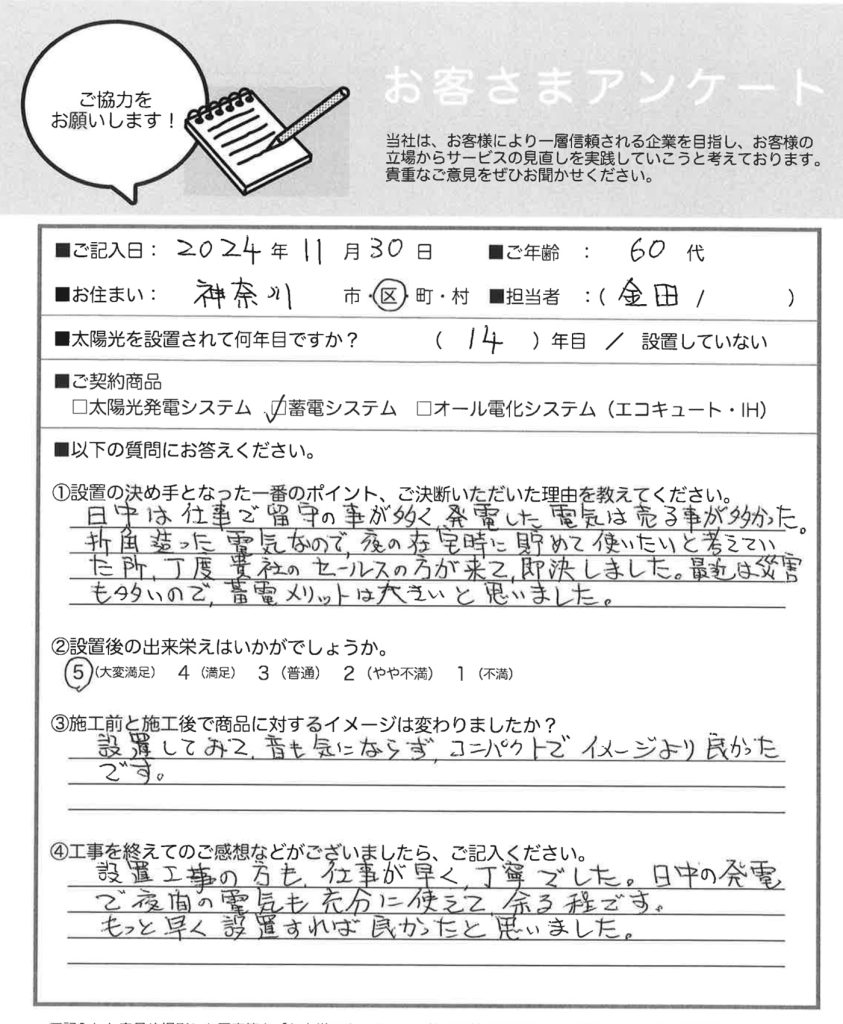 ご協力を
お願いします！
お客さまアンケート
当社は、お客様により一層信頼される企業を目指し、お客様の
立場からサービスの見直しを実践していこうと考えております。
貴重なご意見をぜひお聞かせください。
■ご記入日： 2024 年 11 月 30 日 ■ご年齢 ： 60 代
■お住まい： 神奈川 市・区・町・村 ■担当者 ：( 金田 / )
■太陽光を設置されて何年目ですか？ ( 14 ) 年目 ／ 設置していない
■ご契約商品
□太陽光発電システム ☑蓄電システム □オール電化システム（エコキュート・IH）
■以下の質問にお答えください。
①設置の決め手となった一番のポイント、ご決断いただいた理由を教えてください。
日中は仕事で留守の事が多く、発電した電気は売る事が多かった。
折角造った電気なので、夜の在宅時に貯めて使いたいと考えてい
た所、丁度貴社のセールスの方が来て、即決しました。最近は災害
も多いので、蓄電メリットは大きいと思いました。
②設置後の出来栄えはいかがでしょうか。
5（大変満足） 4（満足） 3（普通） 2（やや不満） 1（不満）
③施工前と施工後で商品に対するイメージは変わりましたか？
設置してみて、音も気にならず、コンパクトでイメージより良かった
です。
④工事を終えてのご感想などがございましたら、ご記入ください。
設置工事の方も、仕事が早く、丁寧でした。日中の発電
で夜間の電気も充分に使えて、余る程です。
もっと早く設置すれば良かったと思いました。